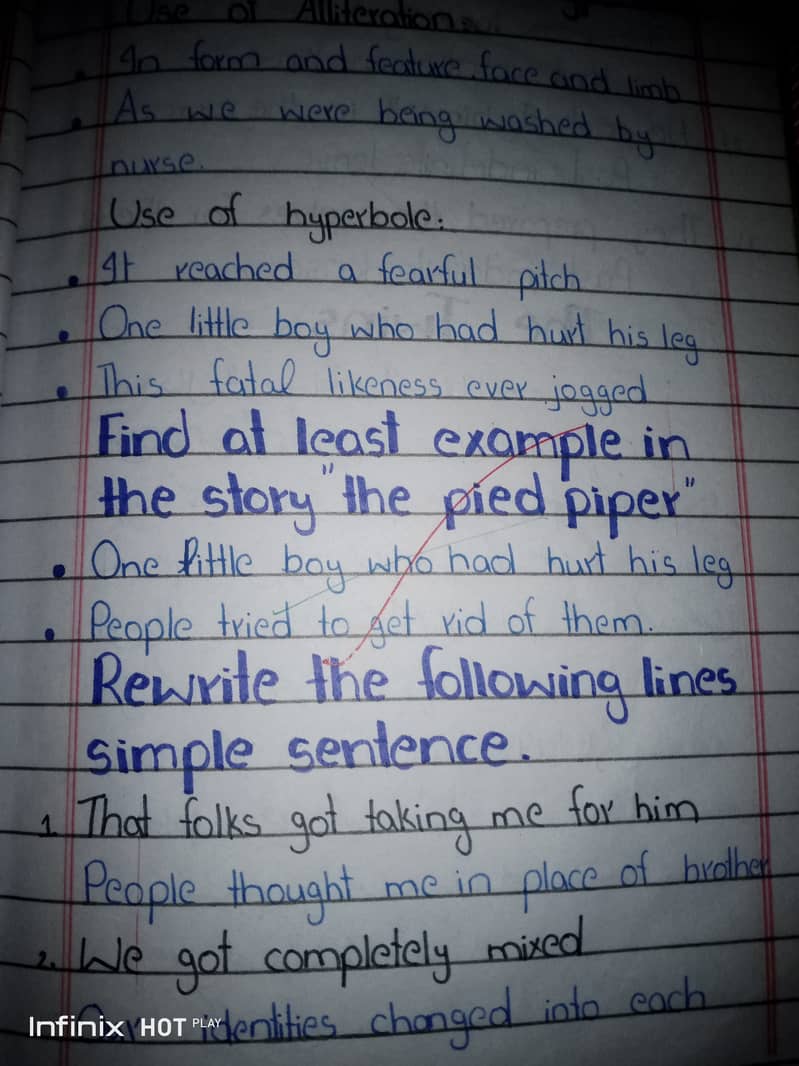 Use of Alliteration:
• In form and feature, face and limb
• As we were being washed by
nurse.
Use of hyperbole:
• It reached a fearful pitch
• One little boy who had hurt his leg
• This fatal likeness ever jogged
Find at least example in
the story "the pied piper"
• One little boy who had hurt his leg
• People tried to get rid of them.
Rewrite the following lines
simple sentence.
1. That folks got taking me for him
People thought me in place of brother
2. We got completely mixed
Our identities changed into each
Infinix HOT PLAY